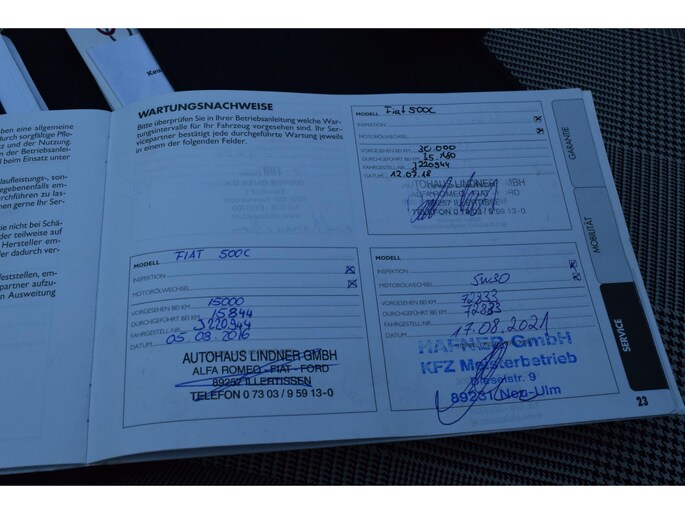 ben eine allgemeine
durch sorgfältige Pfle-
und der Nutzung.
en der Betriebsanlei-
d beim Einsatz unter
laufleistungs-, son-
gegebenenfalls em-
rchführen zu las-
en gerne Ihr Ser-
ie nicht bei Schä-
der teilweise auf
Hersteller em-
er dadurch ver-
feststellen, em-
partner aufzu-
n Ausweitung
WARTUNGSNACHWEISE
Bitte überprüfen Sie in Ihrer Betriebsanleitung welche War-
tungsintervalle für Ihr Fahrzeug vorgesehen sind. Ihr Ser-
vicepartner bestätigt jede durchgeführte Wartung jeweils
in einem der folgenden Felder.
MODELL Fiat 500C
INSPEKTION
MOTORÖLWECHSEL
VORGESEHEN BEI KM 30 000
DURCHGEFÜHRT BEI KM
FAHRGESTELL-NR. J220944
DATUM 12.09.18
AUTOHAUS LINDNER GMBH
ALFA ROMEO - FIAT - FORD
89257 ILLERTISSEN
TELEFON 0 73 03 / 9 59 13-0
MODELL FIAT 500C
INSPEKTION
MOTORÖLWECHSEL
VORGESEHEN BEI KM 15000
DURCHGEFÜHRT BEI KM 15844
FAHRGESTELL-NR. J220944
DATUM 05.09.2016
AUTOHAUS LINDNER GMBH
ALFA ROMEO - FIAT - FORD
89257 ILLERTISSEN
TELEFON 0 73 03 / 9 59 13-0
MODELL
INSPEKTION
MOTORÖLWECHSEL 5W30
VORGESEHEN BEI KM 72833
DURCHGEFÜHRT BEI KM 72833
FAHRGESTELL-NR.
DATUM 17.08.2021
HAFNER GmbH
KFZ Meisterbetrieb
Dieselstr. 9
89231 Neu-Ulm
GARANTIE
MOBILITÄT
SERVICE
23